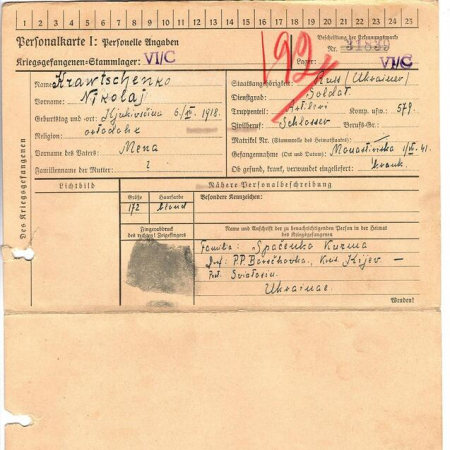 1 2 3 4 5 6 7 8 9 10 11 12 13 14 15 16 17 18 19 20 21 22 23 24 25
Personalkarte I: Personelle Angaben
Kriegsgefangenen-Stammlager: VI/C
Beschriftung der Erkennungsmarke
Nr. 31839
Lager: VI/C
192
Des Kriegsgefangenen
Name: Krawtschenko
Vorname: Nikolaj
Geburtstag und -ort: 6/ 1918.
Religion: ortodoks
Vorname des Vaters: Mena
Familienname der Mutter: ?
Staatsangehörigkeit: Russ/(Ukrainer)
Dienstgrad: Soldat
Truppenteil: Komp. usw.: 579.
Zivilberuf: Schlosser Berufs-Gr.:
Matrikel Nr. (Stammrolle des Heimatstaates):
Gefangennahme (Ort und Datum): 41.
Ob gesund, krank, verwundet eingeliefert: krank
Lichtbild
Nähere Personalbeschreibung
Größe Haarfarbe Besondere Kennzeichen:
172 blond
Fingerabdruck
des rechten! Zeigefingers
Name und Anschrift der zu benachrichtigenden Person in der Heimat
des Kriegsgefangenen
Familie: Spačenko Kuzma
P.P. Borščhovka, Kijev —
Ukrainas
Wenden!